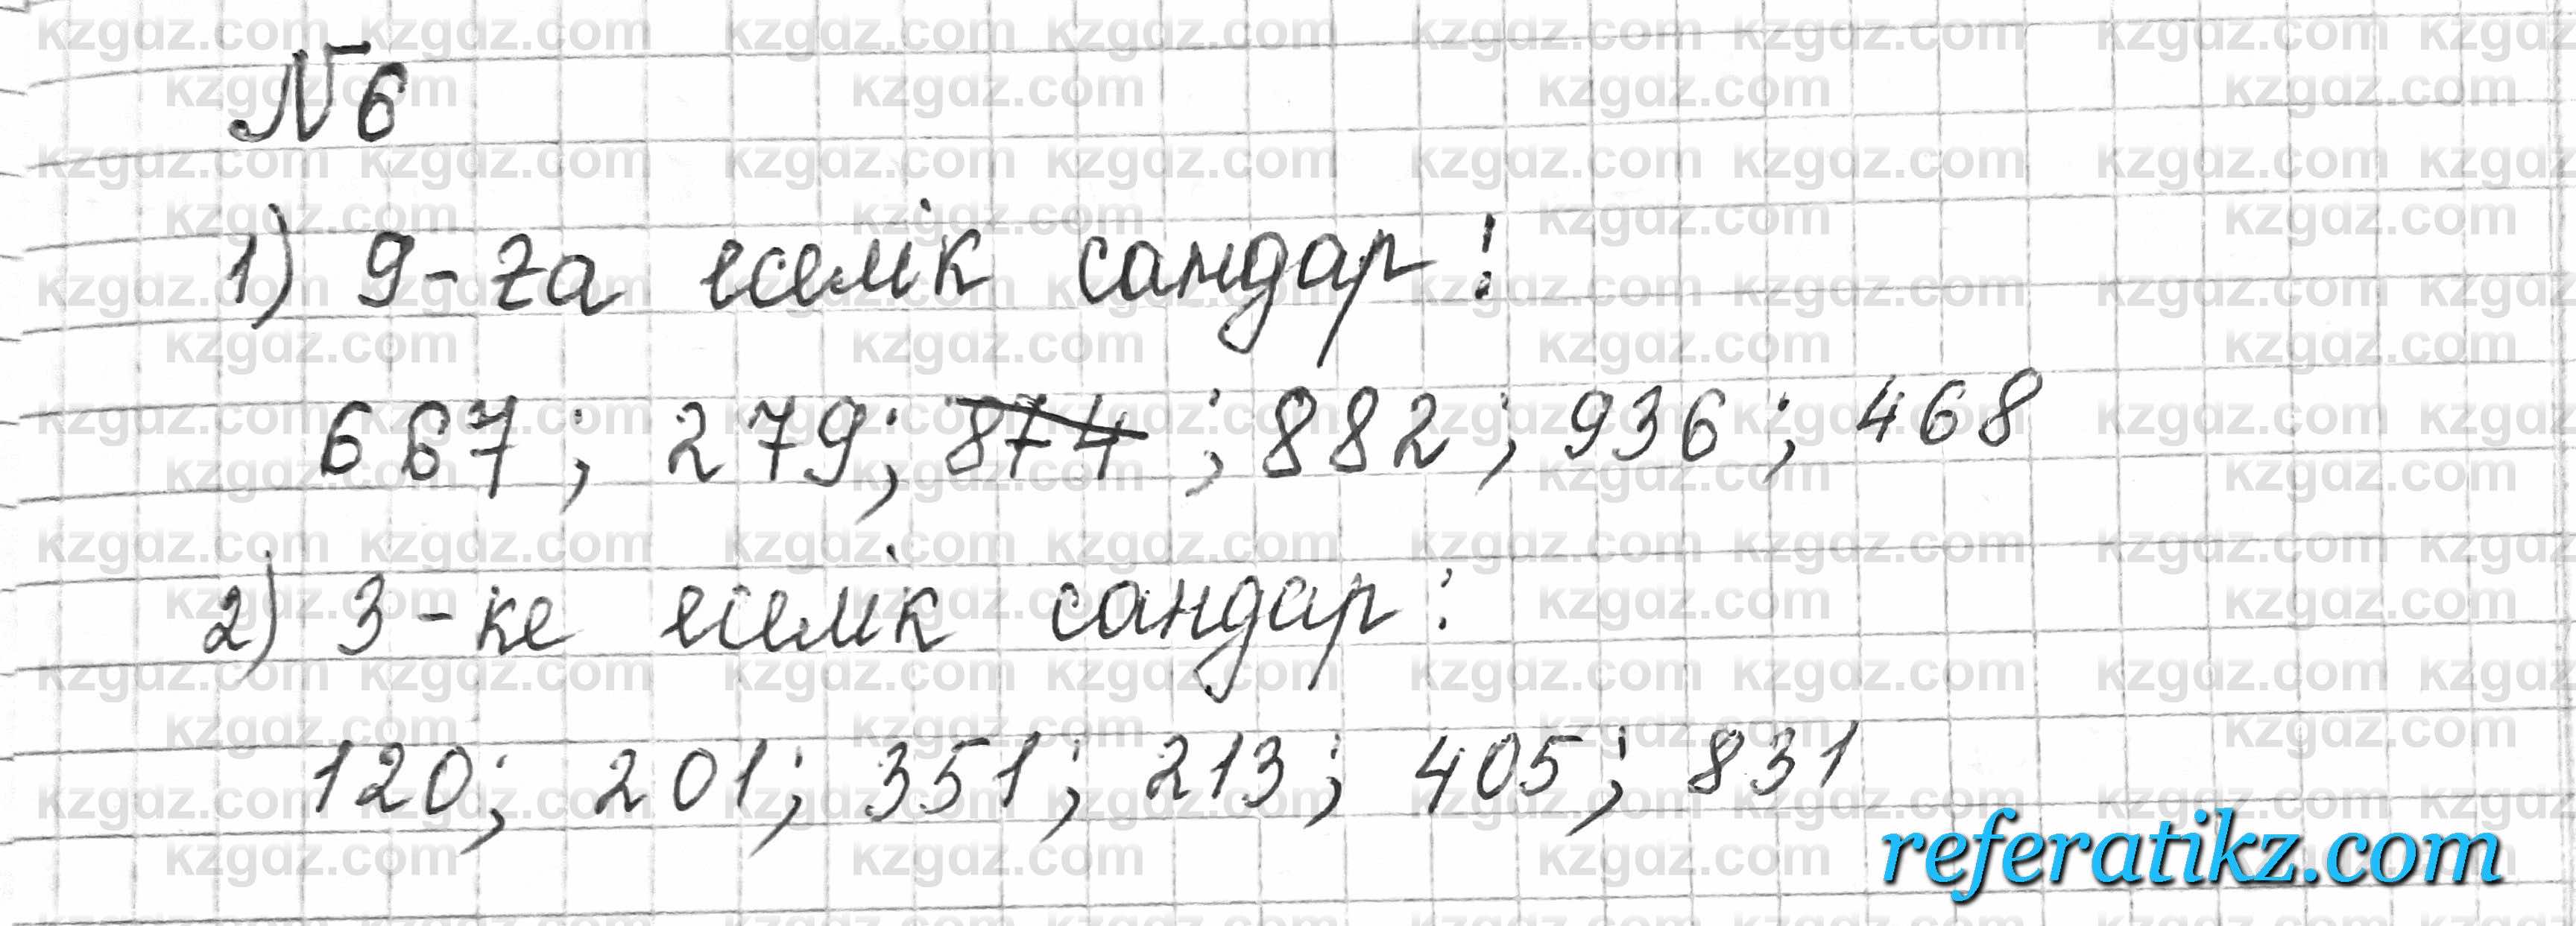 №6
1) 9-ға еселік сандар:
667; 279; 874; 882; 936; 468
2) 3-ке еселік сандар:
120; 201; 351; 213; 405; 831
referatikz.com
kzgdz.com